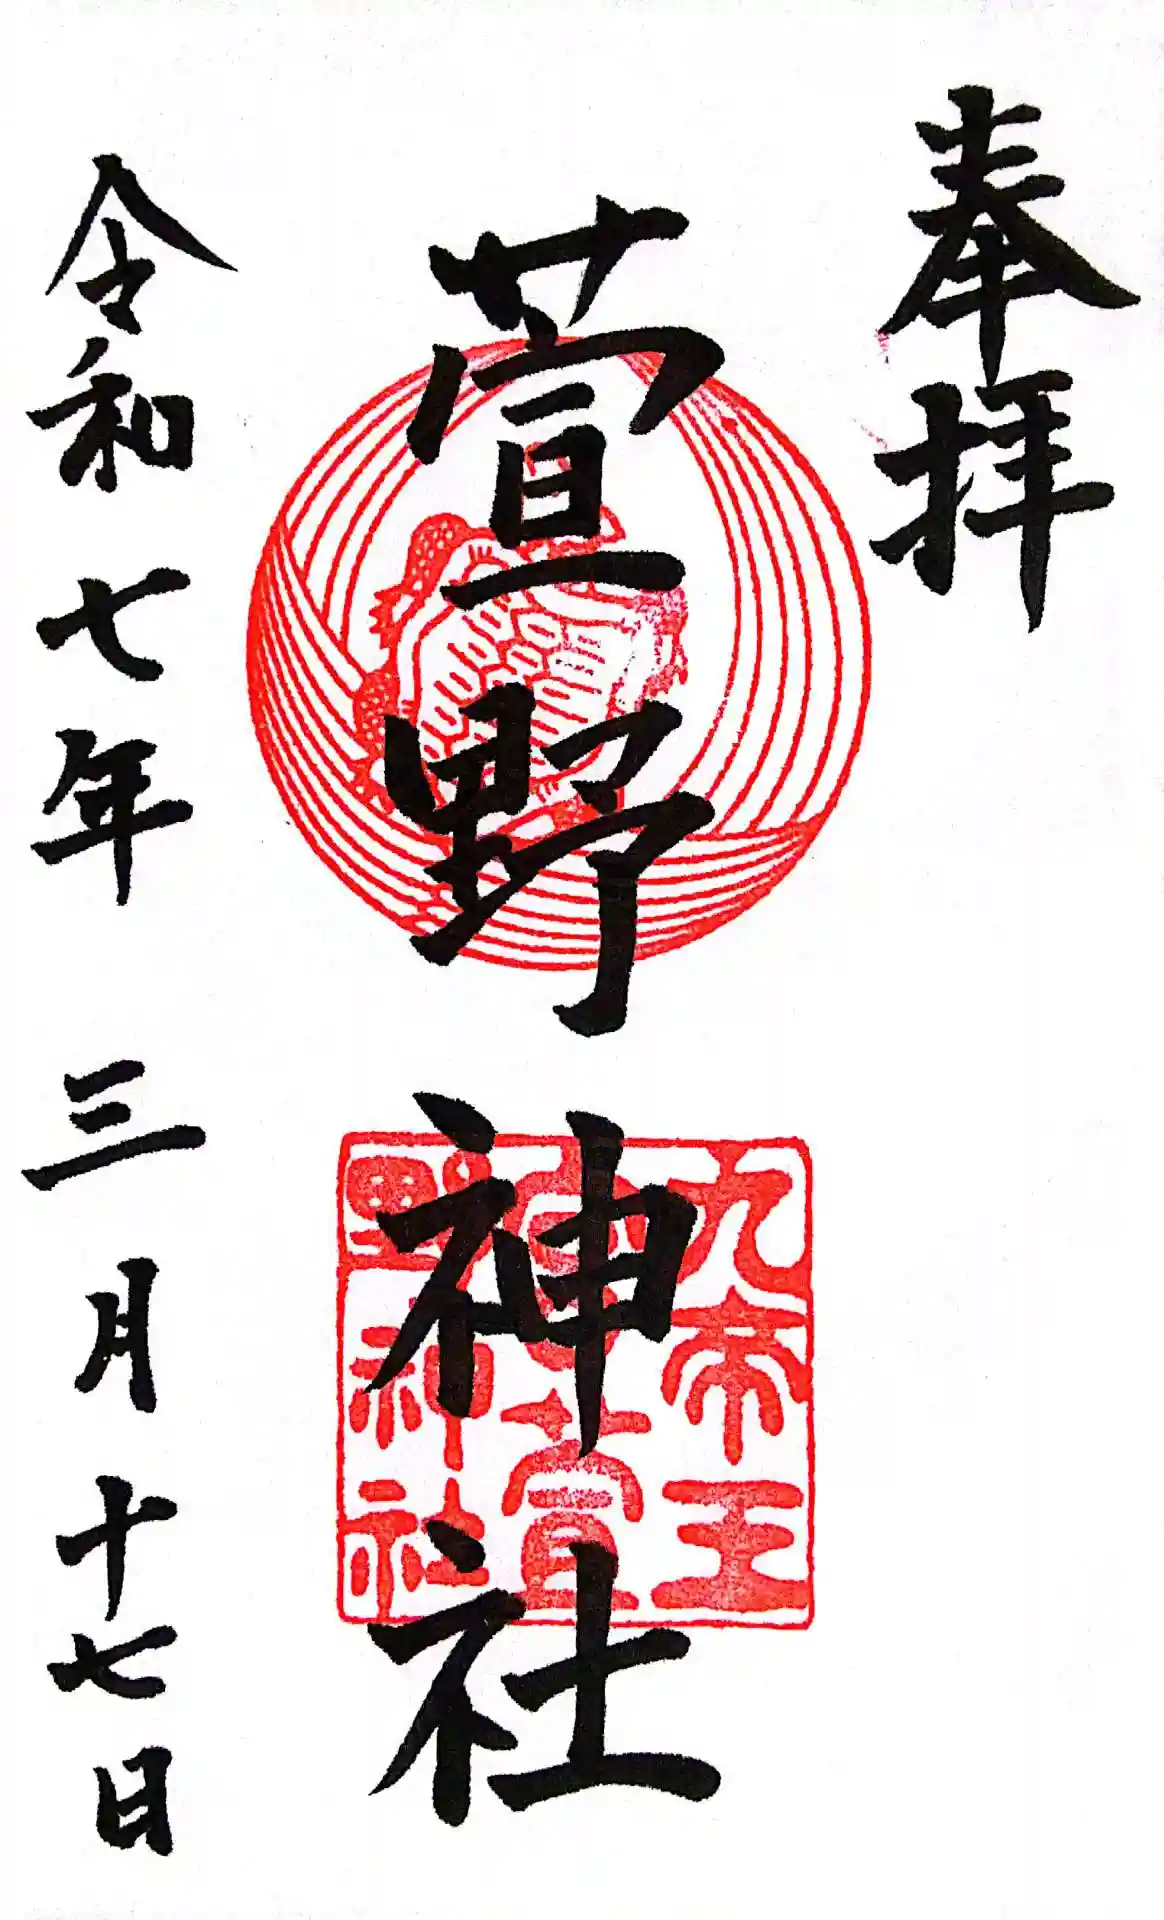 奉拝
萱野神社
令和七年 三月十七日
九帝王
萱
野神社